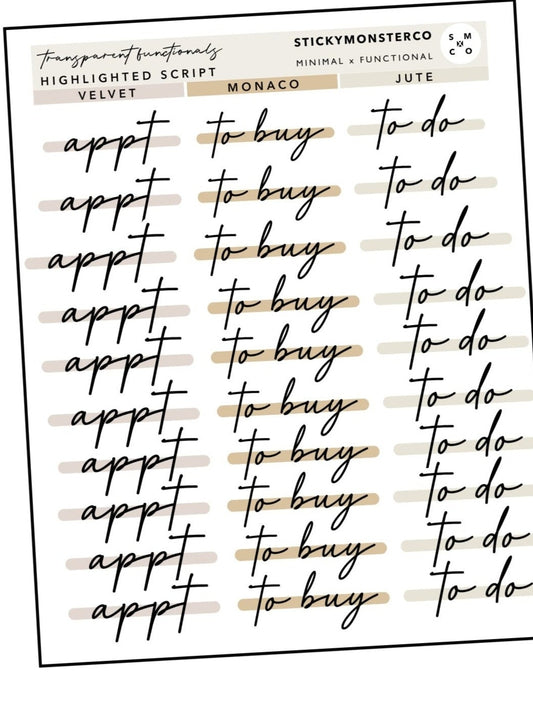 transparent functionals
HIGHLIGHTED SCRIPT
STICKYMONSTERCO
MINIMAL x FUNCTIONAL
S M
K
C O
VELVET MONACO JUTE
appt to buy to do
appt to buy to do
appt to buy to do
appt to buy to do
appt to buy to do
appt to buy to do
appt to buy to do
appt to buy to do
appt to buy to do
appt to buy to do